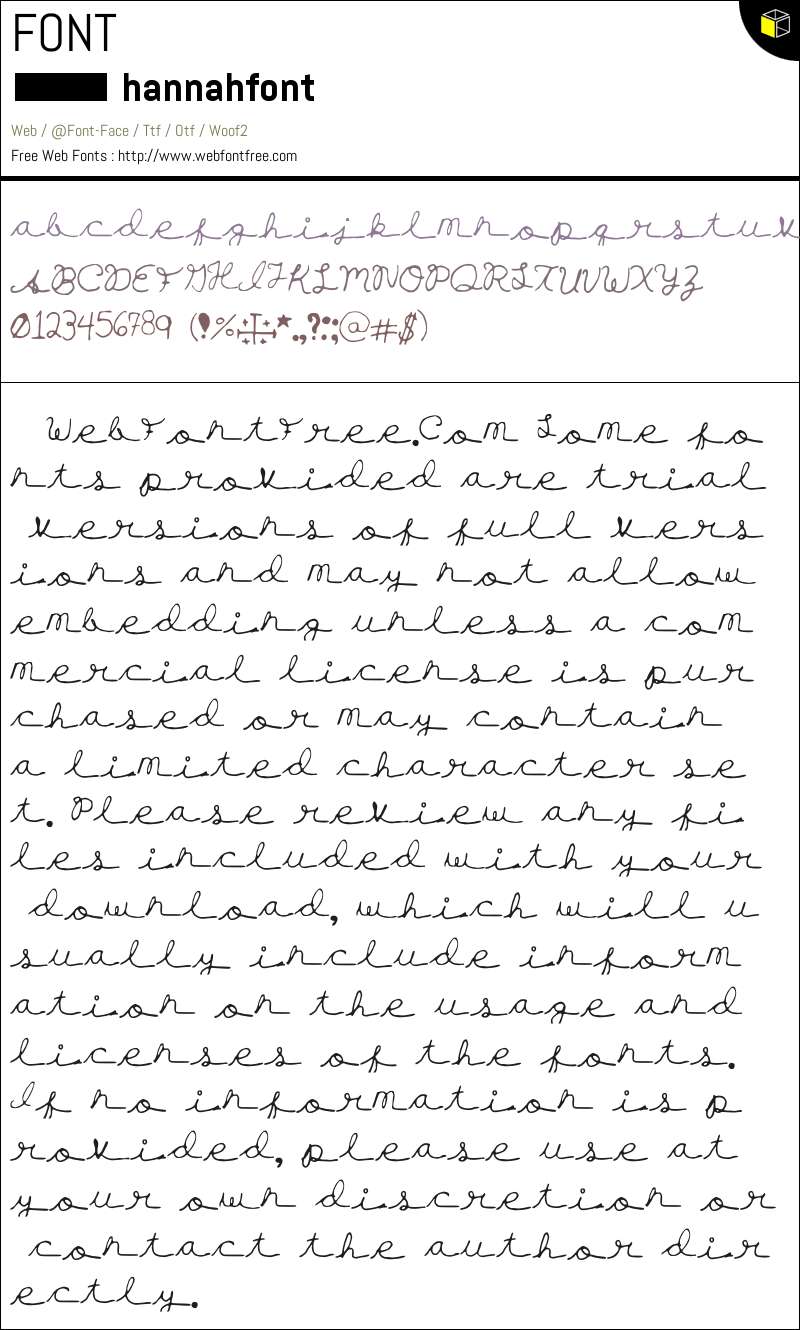 FONT
hannahfont
Web / @Font-Face / Ttf / Otf / Woof2
Free Web Fonts : http://www.webfontfree.com
abcdefghijklmnopqrstuv
ABCDEFGHIJKLMNOPQRSTUVWXYZ
0123456789 (!%‡*.,?:;@#$)
WebFontFree.Com Some fo
nts provided are trial
versions of full vers
ions and may not allow
embedding unless a com
mercial license is pur
chased or may contain
a limited character se
t. Please review any fi
les included with your
download, which will u
sually include inform
ation on the usage and
licenses of the fonts.
If no information is p
rovided, please use at
your own discretion or
contact the author dir
ectly.